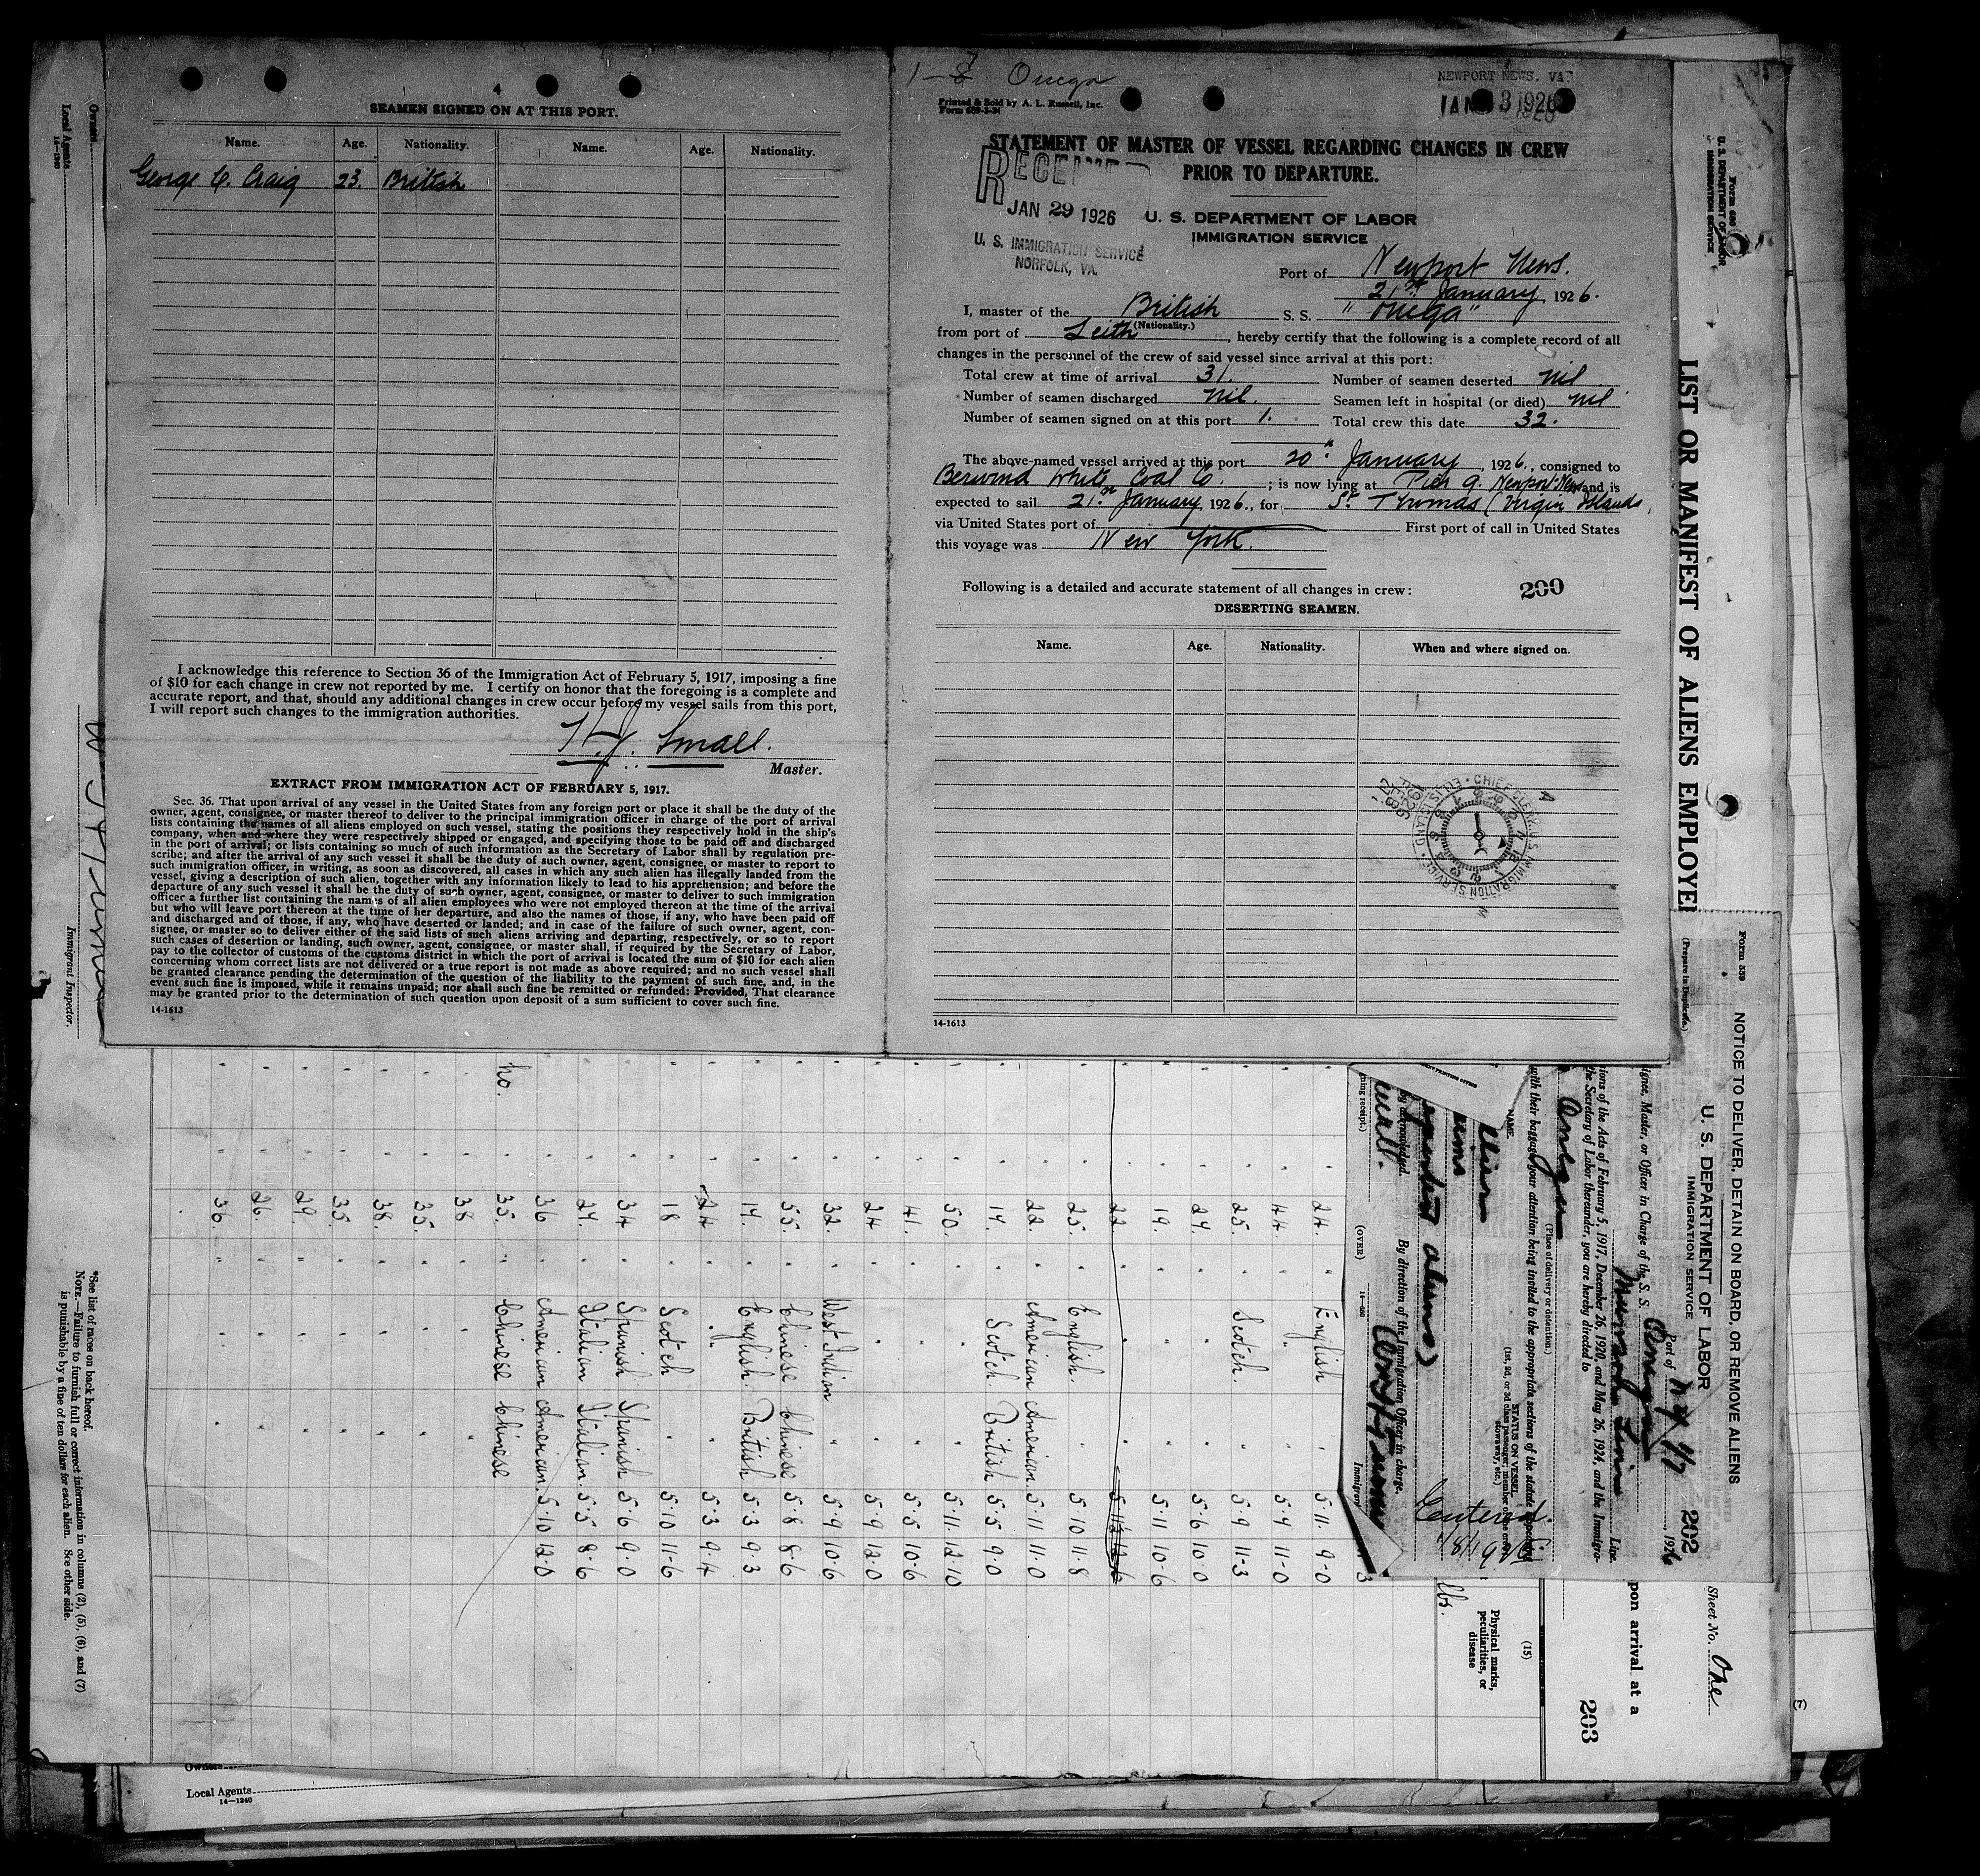 4
SEAMEN SIGNED ON AT THIS PORT.
Name. Age. Nationality. Name. Age. Nationality.
George C. Craig 23. British
I acknowledge this reference to Section 36 of the Immigration Act of February 5, 1917, imposing a fine
of $10 for each change in crew not reported by me. I certify on honor that the foregoing is a complete and
accurate report, and that, should any additional changes in crew occur before my vessel sails from this port,
I will report such changes to the immigration authorities.
H. J. Small.
Master.
EXTRACT FROM IMMIGRATION ACT OF FEBRUARY 5, 1917.
Sec. 36. That upon arrival of any vessel in the United States from any foreign port or place it shall be the duty of the
owner, agent, consignee, or master thereof to deliver to the principal immigration officer in charge of the port of arrival
lists containing the names of all aliens employed on such vessel, stating the positions they respectively hold in the ship's
company, when and where they were respectively shipped or engaged, and specifying those to be paid off and discharged
in the port of arrival; or lists containing so much of such information as the Secretary of Labor shall by regulation pre-
scribe; and after the arrival of any such vessel it shall be the duty of such owner, agent, consignee, or master to report to
such immigration officer, in writing, as soon as discovered, all cases in which any such alien has illegally landed from the
vessel, giving a description of such alien, together with any information likely to lead to his apprehension; and before the
departure of any such vessel it shall be the duty of such owner, agent, consignee, or master to deliver to such immigration
officer a further list containing the names of all alien employees who were not employed thereon at the time of the arrival
but who will leave port thereon at the time of her departure, and also the names of those, if any, who have been paid off
and discharged and of those, if any, who have deserted or landed; and in case of the failure of such owner, agent, con-
signee, or master so to deliver either of the said lists of such aliens arriving and departing, respectively, or so to report
such cases of desertion or landing, such owner, agent, consignee, or master shall, if required by the Secretary of Labor,
pay to the collector of customs of the customs district in which the port of arrival is located the sum of $10 for each alien
concerning whom correct lists are not delivered or a true report is not made as above required; and no such vessel shall
be granted clearance pending the determination of the question of the liability to the payment of such fine, and, in the
event such fine is imposed, while it remains unpaid; nor shall such fine be remitted or refunded: Provided, That clearance
may be granted prior to the determination of such question upon deposit of a sum sufficient to cover such fine.
14-1613
Onega
Printed & Sold by A. L. Russell, Inc.
Form 689-3-24
NEWPORT NEWS, VA.
STATEMENT OF MASTER OF VESSEL REGARDING CHANGES IN CREW
PRIOR TO DEPARTURE.
RECEIVED
JAN 29 1926
U. S. IMMIGRATION SERVICE
NORFOLK, VA.
U. S. DEPARTMENT OF LABOR
IMMIGRATION SERVICE
Port of Newport News.
21st January, 1926.
I, master of the British S. S. "Onega"
(Nationality.)
from port of Leith, hereby certify that the following is a complete record of all
changes in the personnel of the crew of said vessel since arrival at this port:
Total crew at time of arrival 31. Number of seamen deserted nil
Number of seamen discharged nil. Seamen left in hospital (or died) nil
Number of seamen signed on at this port 1. Total crew this date 32.
The above-named vessel arrived at this port 20th January, 1926., consigned to
Berwind White Coal Co.; is now lying at Pier 9. Newport News and is
expected to sail 21st January, 1926., for St Thomas (Virgin Islands,
via United States port of First port of call in United States
this voyage was New York.
Following is a detailed and accurate statement of all changes in crew: 200
DESERTING SEAMEN.
Name. Age. Nationality. When and where signed on.
14-1613
Form 680
U. S. DEPARTMENT OF LABOR
IMMIGRATION SERVICE
LIST OR MANIFEST OF ALIENS EMPLOYE
(Prepare in Duplicate.)
Form 559
NOTICE TO DELIVER, DETAIN ON BOARD, OR REMOVE ALIENS
U. S. DEPARTMENT OF LABOR
IMMIGRATION SERVICE
202
Port of N.Y. 1/7, 1926
Munson Line Line.
ignee, Master, or Officer in Charge of the S. S. Onega
ions of the Acts of February 5, 1917, December 26, 1920, and May 26, 1924, and the Immigra-
the Secretary of Labor thereunder, you are hereby directed to
(Place of delivery or detention.)
with their baggage, your attention being invited to the appropriate sections of the statute
NAME.
STATUS ON VESSEL
(1st, 2d, or 3d class passenger; member of the crew,
stowaway, etc.)
aliens)
by acknowledged. By direction of the Immigration Officer in charge.
Immigrant
ning receipt.)
(OVER)
Sheet No. One
pon arrival at a
203
(15)
Physical marks,
peculiarities, or
disease
lbs.
(7)
24. " English " 5-11. 9-0
44. " " " 5-9 11-0
25. " Scotch. " 5-9 11-3
29. " " " 5-6 10-0
19. " " " 5-11 10-6
22
25. " English. " 5-10 11-8
22. " American American. 5-11 11-0
19. " Scotch. British 5-5 9-0
50. " " " 5-11. 12-10
41. " " " 5-5 10-6
24 " " " 5-9 12-0
32 " West Indian " 5-9 10-6
55. " Chinese Chinese 5-8 8-6
19. " English. British 5-3 9-3
24. " " " 5-3 9-4
18 " Scotch " 5-10 11-6
34 " Spanish Spanish 5-6 9-0
27. " Italian Italian. 5-5 8-6
36 " American American. 5-10 12-0
ho. 35. " Chinese Chinese
38 " " "
35. " " "
38. " " "
35. " " "
29. " " "
26. " " "
36. " " "
*See list of races on back hereof.
NOTE.—Failure to furnish full or correct information in columns (2), (5), (6), and (7)
is punishable by a fine of ten dollars for each alien. See other side.
Immigrant Inspector.
Owners
Local Agents
14—1240
Owners
Local Agents
14—1240